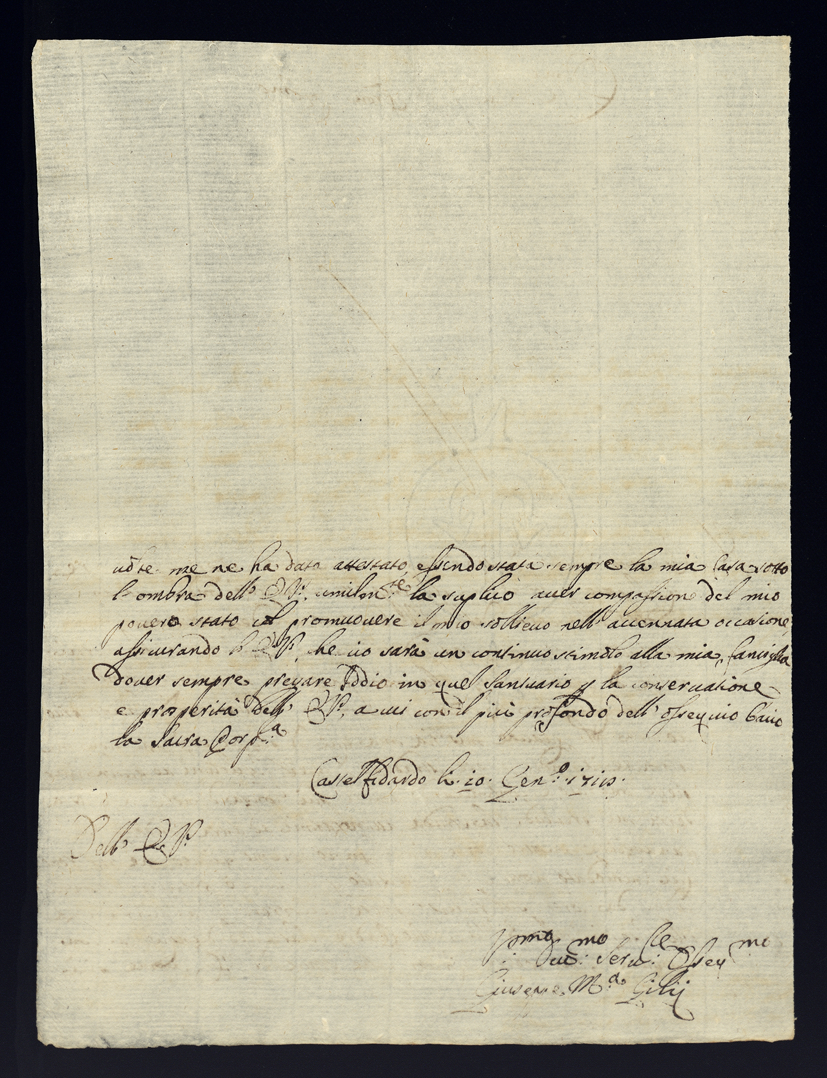 uõte me ne ha data attestato, essendo stata sempre la mia Casa sotto
l'ombra dell' umilm.te la suplico aver compassione del mio
povero stato col promuovere il mio sollievo nell'accennata occasione
assicurando l' che ciò sarà un continuo stimolo alla mia famiglia
dover sempre pregare Iddio in quel Santuario p la conservatione
e prosperità dell' a cui con il più profondo dell'ossequio bacio
la Sacra Porp.a
Castelfidardo li 10. Gen.o
Dell'
Serv.e Osseq.mo
Giuseppe M.a Gilij